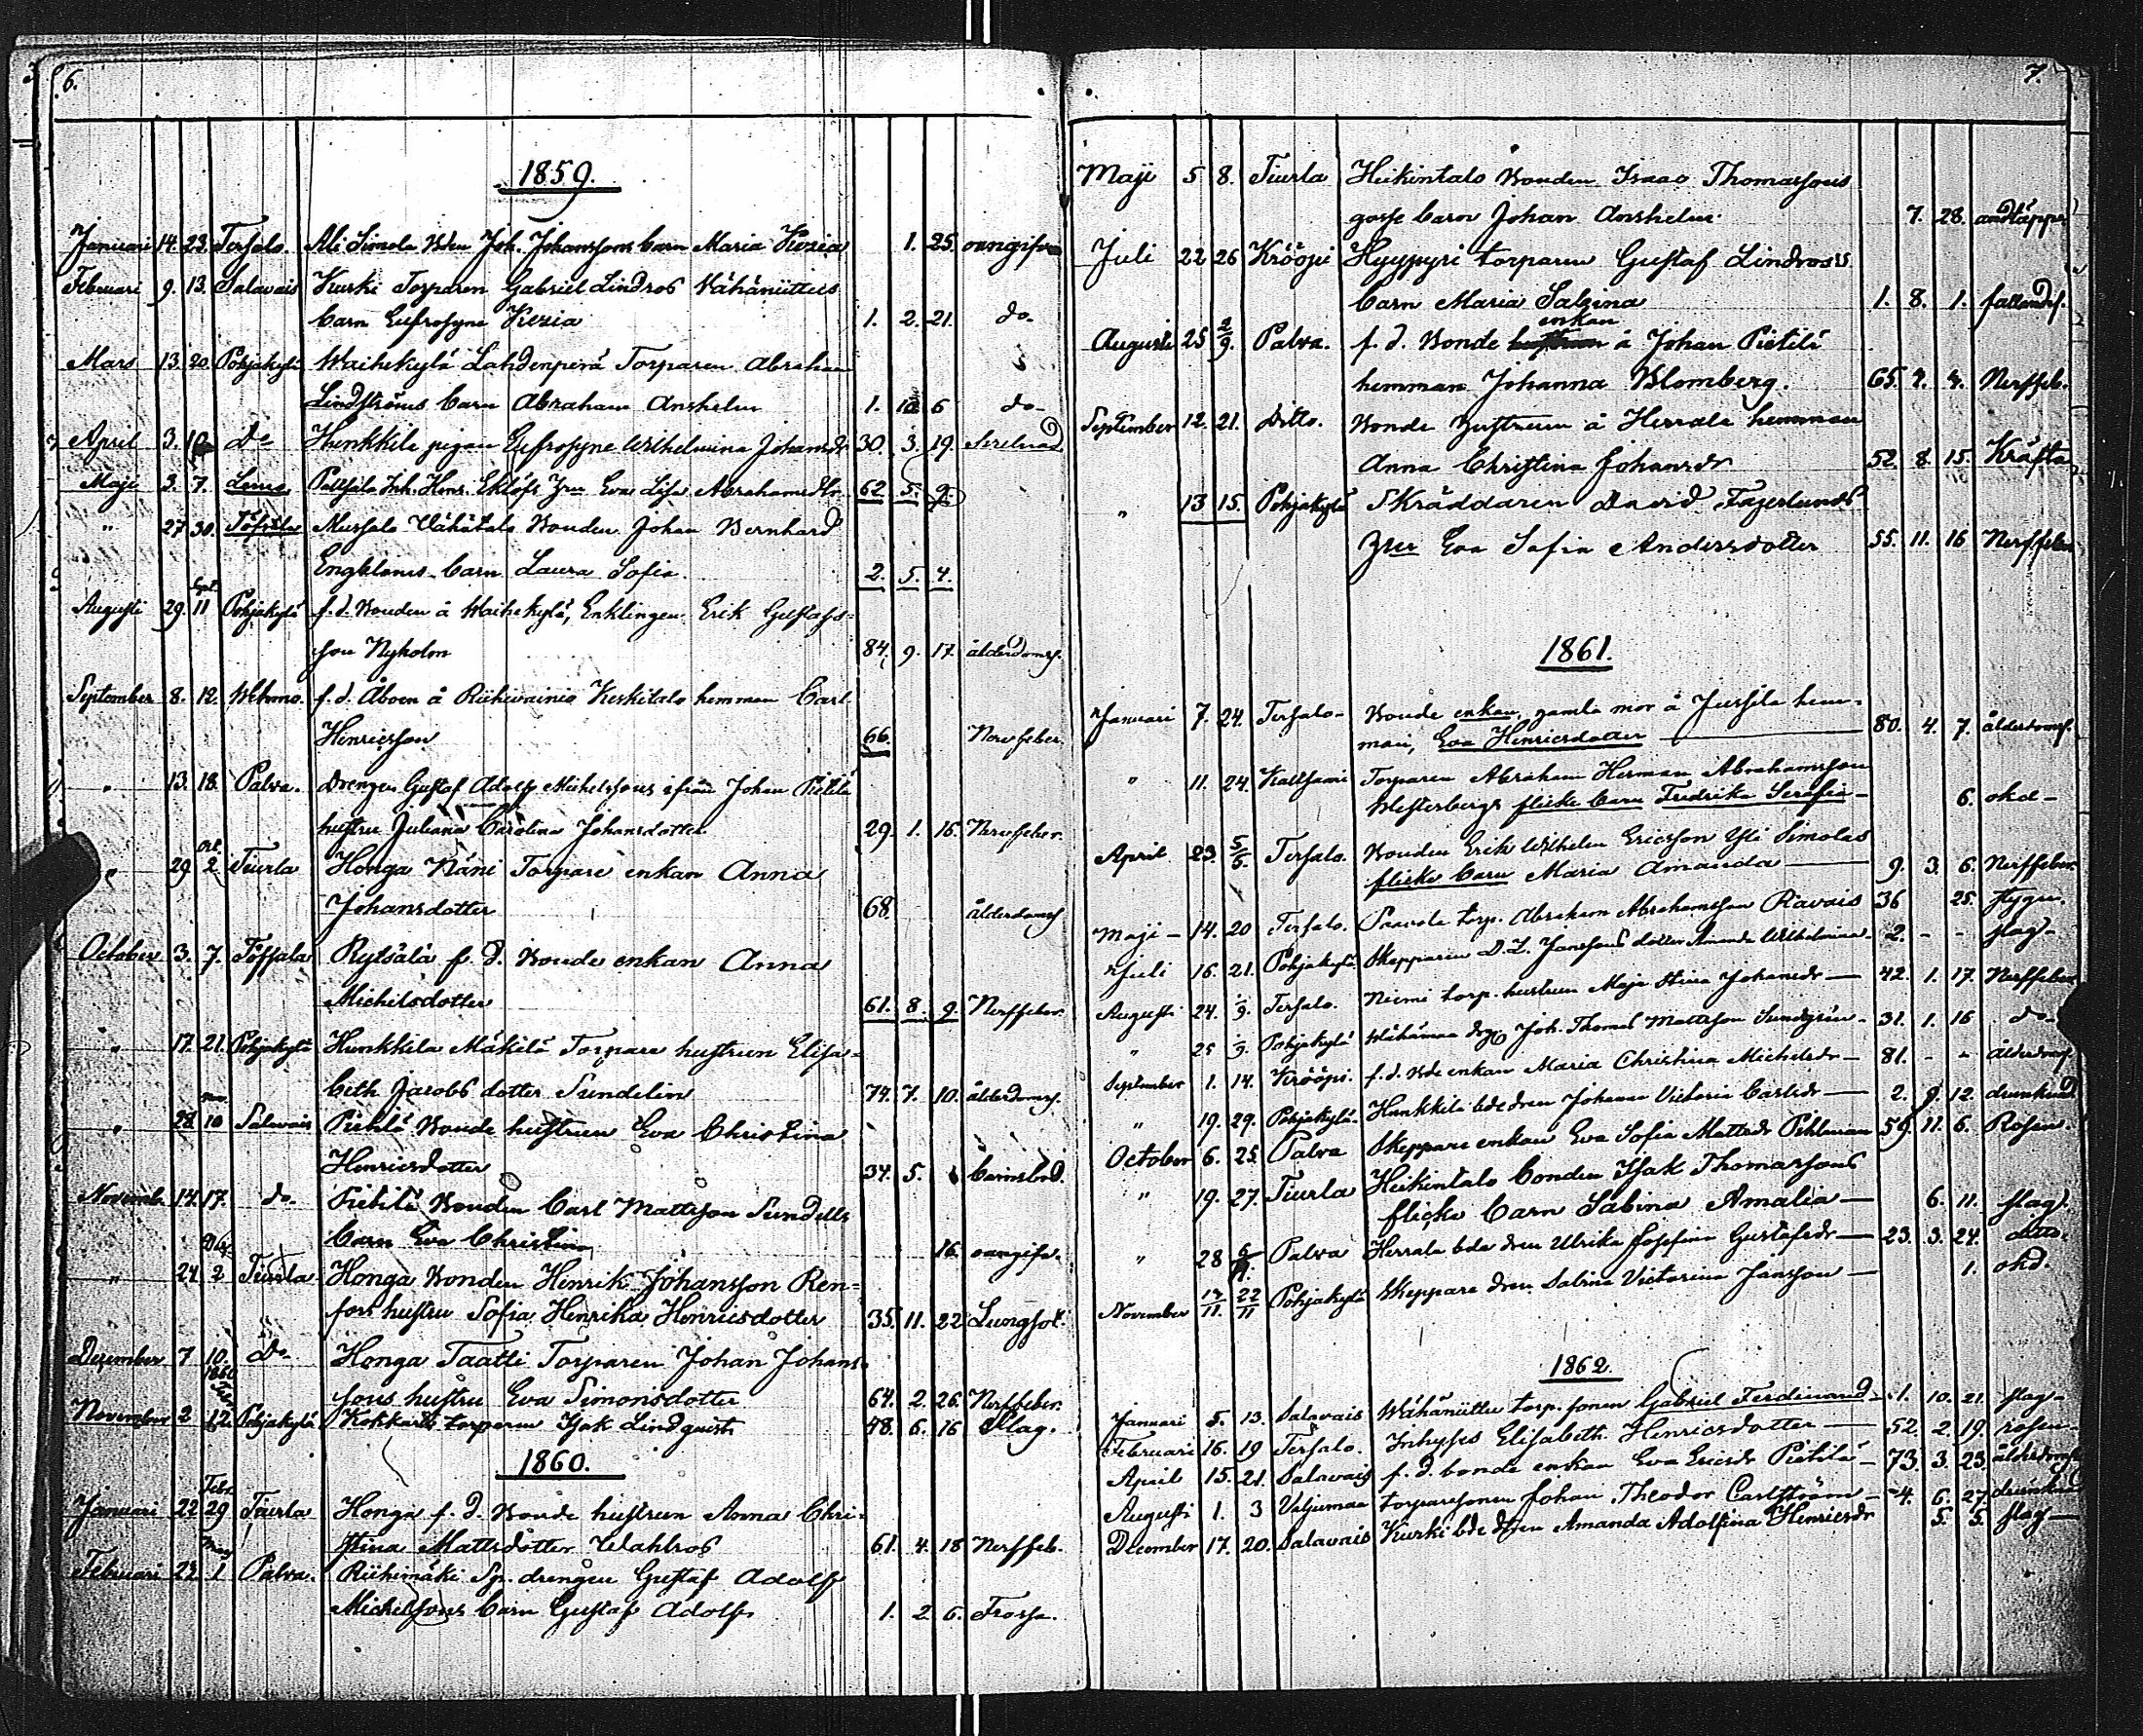 6.
1859.
Januari 14. 23. Tersalo. Ali Simola Bden Joh. Johanssons barn Maria Kezia 1. 25. oangifven
Februari 9. 13. Salavais Kurki Torparen Gabriel Lindros Vähäniittus
barn Eufrosyne Kezia 1. 2. 21. do-
Mars 13. 20. Pohjakylä Waihekylä Lahdenperä Torparen Abraham
Lindströms barn Abraham Anshelm 1. 10 6 do-
April 3. Do Hunkkila pigan Eufrosyne Wilhelmina Johansdr 30. 3. 19.
Maji 3. 7. Lemo Inh. Henr. Eklöfs Eva Lisa Abrahamsdtr 62 5. 9.
" 27 30. Mussalo Vähätalo Bonden Johan Bernhard
Englloms barn Laura Sofia 2. 5. 4.
Augusti 29. Sept. 11 Pohjakylä f.d. Bonden å Waihekylä, Enklingen Erik Gustafs=
son Nyholm 84. 9. 17. ålderdomsf.
September 8. 12. Wehmo. f.d. Åboen å Riihivainio Keskitalo hemman Carl
Henricsson 66. Nervfeber.
" 13. 18. Palva. Drengen Gustaf Adolf Michelssons ifrån Johan Pietilä
hustru Juliana Carolina Johansdotter 29. 1. 16. Nervfeber.
" 29 Oct. 2 Tiurla Honga Näni Torpare enkan Anna
Johansdotter 68. ålderdomsf
October 3. 7. Töfsala Rytsälä f. d. Bonde enkan Anna
Michelsdotter 61. 8. 9. Nerffeber.
" 17. 21. Pohjakylä Hunkkila Mäkilä Torpare hustrun Elisa=
beth Jacobs dotter Sundelin 74. 7. 10. ålderdomsf.
" 28. nov. 10 Salavais Pietilä Bonde hustrun Eva Christina
Henricsdotter 34. 5. barnsbörd.
Novemb. 14. 17. do- Pietilä Bonden Carl Mattsson Sundells
barn Eva Christina 16. oangifv.
" 24 Dec. 2 Tiurla Honga Bonden Henrik Johansson Ren=
fors hustru Sofia Henrika Henricsdotter 35. 11. 22 Lungsot.
December 7 10. Do- Honga Taatti Torparen Johan Johans
sons hustru Eva Simonsdotter 64. 2. 26. Nerffeber.
November 2 1860 12. Pohjakylä torparen Isak Lindqvist 48. 6. 16 Slag.
1860.
Januari 22 Febr. 29 Tiurla Honga f. d. Bonde hustrun Anna Chri=
stina Mattsdotter Wahlros 61. 4. 18 Nerffeb.
Februari 1 Palva. Riihimäki Sp. drengen Gustaf Adolf
Michelssons barn Gustaf Adolf 1. 2 6. Trossa.
7.
Maji 5 8. Tiurla Heikintalo Bonden Isaac Thomassons
gosse barn Johan Anshelm. 7. 28. andtäppa
Juli 22 26 Krööpi Hyypyri torparen Gustaf Lindroos
barn Maria Sabina 1. 8. 1. fallands.
Augusti 25 2/9. Palva. f. d. Bonde enkan å Johan Pietilä
hemman Johanna Blomberg. 65. 7. 4. Nerffeb.
September 12. 21. Ditto. Bonde hustrun å Herrala hemman
Anna Christina Johansdr 52. 8. 15. Kräfta
" 13 15. Pohjakylä Skräddaren David Fagerlunds
Eva Sofia Andersdotter 55. 11. 16 Nerffeber
1861.
Januari 7. 24. Tersalo- Bonde enkan, gamla mor å Jussila hem-
man, Eva Henricsdotter 80. 4. 7. ålderdomsf.
" 11. 24. Torparen Abraham Herman Abrahamsson
Westerbergs flicke barn Fredrika Serafia - 6. okd-
April 23. 5/5. Tersalo. Bonden Erik Wilhelm Ericsson Yli Simolas
flicke barn Maria Amanda 9. 3. 6. Nerffeber.
Maji - 14. 20 Tersalo. Paavola torp. Abraham Abrahamsson Ravais 36 25. flygn.
Juli 16. 21. Pohjakylä Skepparen D. L. Janssons dotter Amanda Wilhelmina. 2. - - slag-
Augusti 24. 1/9. Tersalo. Niemi torp. hustrun Maja Stina Johansdr 42. 1. 17. Nerffeber
" 25 1/9. Pohjakylä Joh. Thomas Mattsson Sundgren - 31. 1. 16 do-
September 1. 14. Krööpi. f.d. Bde enkan Maria Christina Michelsdr - 81. - - ålderdomsf.
" 19. 29. Pohjakylä. Hunkkila bde dren Johanna Victoria Carlsdr 2. 9. 12. drunknad
October 6. 25. Palva Skeppare enkan Eva Sofia Mattsdr Pihlman 59. 11. 6. Rosen.
" 19. 27. Tiurla Heikintalo bonden Isak Thomassons
flicke barn Sabina Amalia 6. 11. slag.
" 28 Palva Herrala bde dren Ulrika Josefina Gustafsdr 23. 3. 24. ditto.
November 17/11. 22/11 Pohjakylä Skeppare dren Sabina Victorina Jansson 1. okd.
1862.
Januari 5. 13. Salavais Wähäniittu torp. sonen Gabriel Ferdinand 1. 10. 21. slag-
Februari 16. 19 Tersalo. Inhyses Elisabeth Henricsdotter 52. 2. 19. rosen-
April 15. 21. Salavais f. d. bonde enkan Eva Ericsdr Pietilä 73. 3. 23. ålderdomsf
Augusti 1. 3 Viljumaa torparesonen Johan Theodor Carlström 4. 6. 27. drunknad
December 17. 20. Salavais Kurki bde dren Amanda Adolfina Henricsdr 5. 5. slag